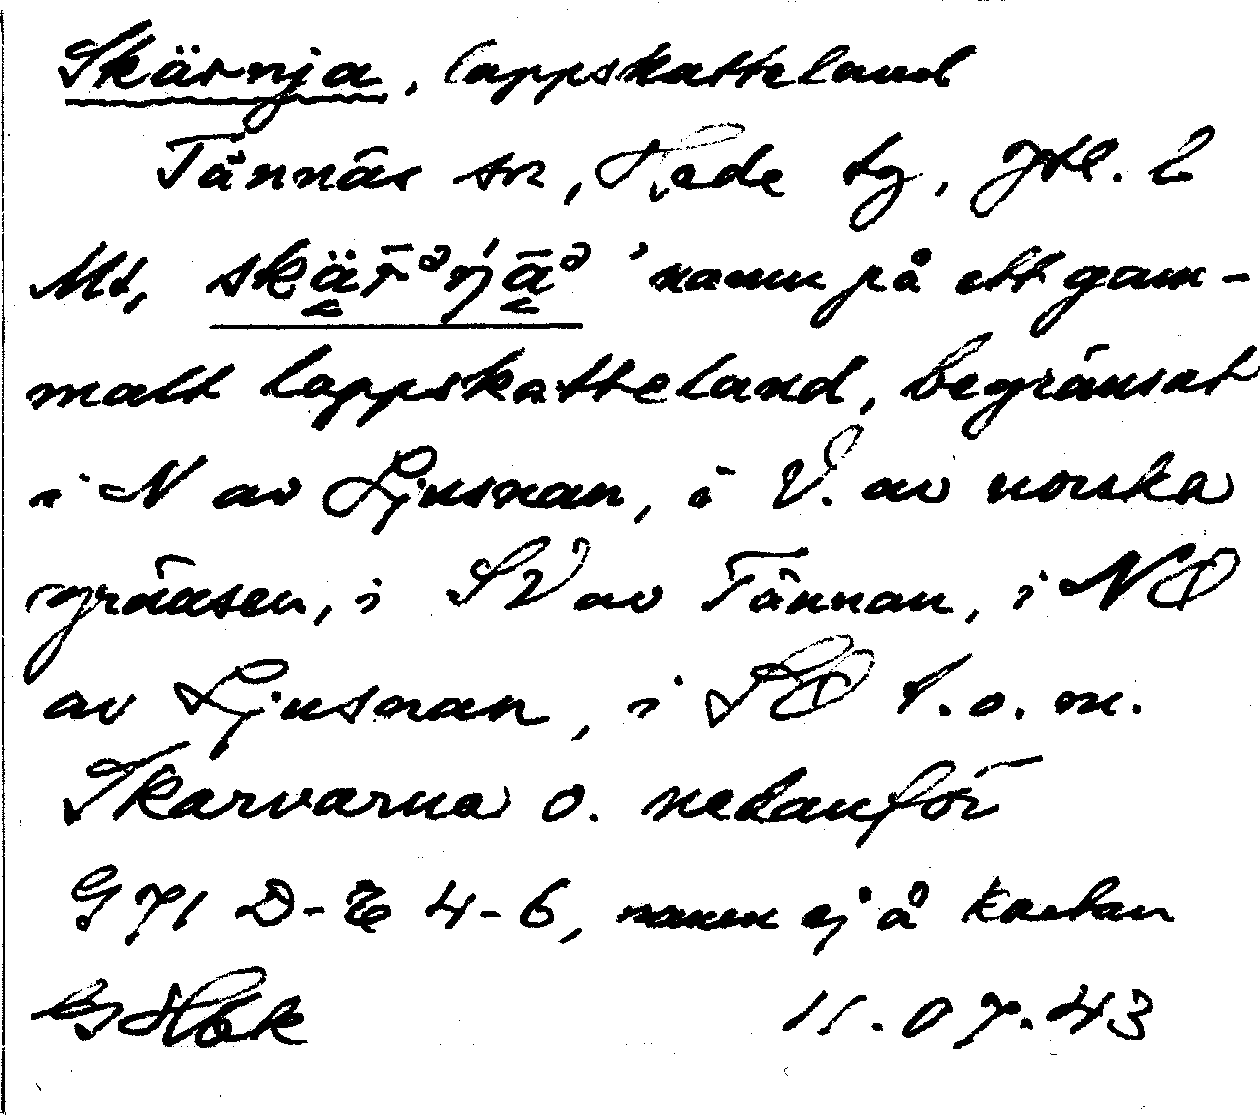 Skärnja, lappskatteland
Tännäs sn, Hede tg, Jtl. l
Mt, skär̄ᵊŋ́ā̈ᵊ 'namn på ett gam-
malt lappskatteland, begränsat
i N av Ljusnan, i V. av norska
gränsen, i SV av Tännan, i NÖ
av Ljusnan, i SÖ t.o.m.
Skarvarna o. nedanför
G 71 D-E 4-6, namn ej å kartan
Hök 11.07.43